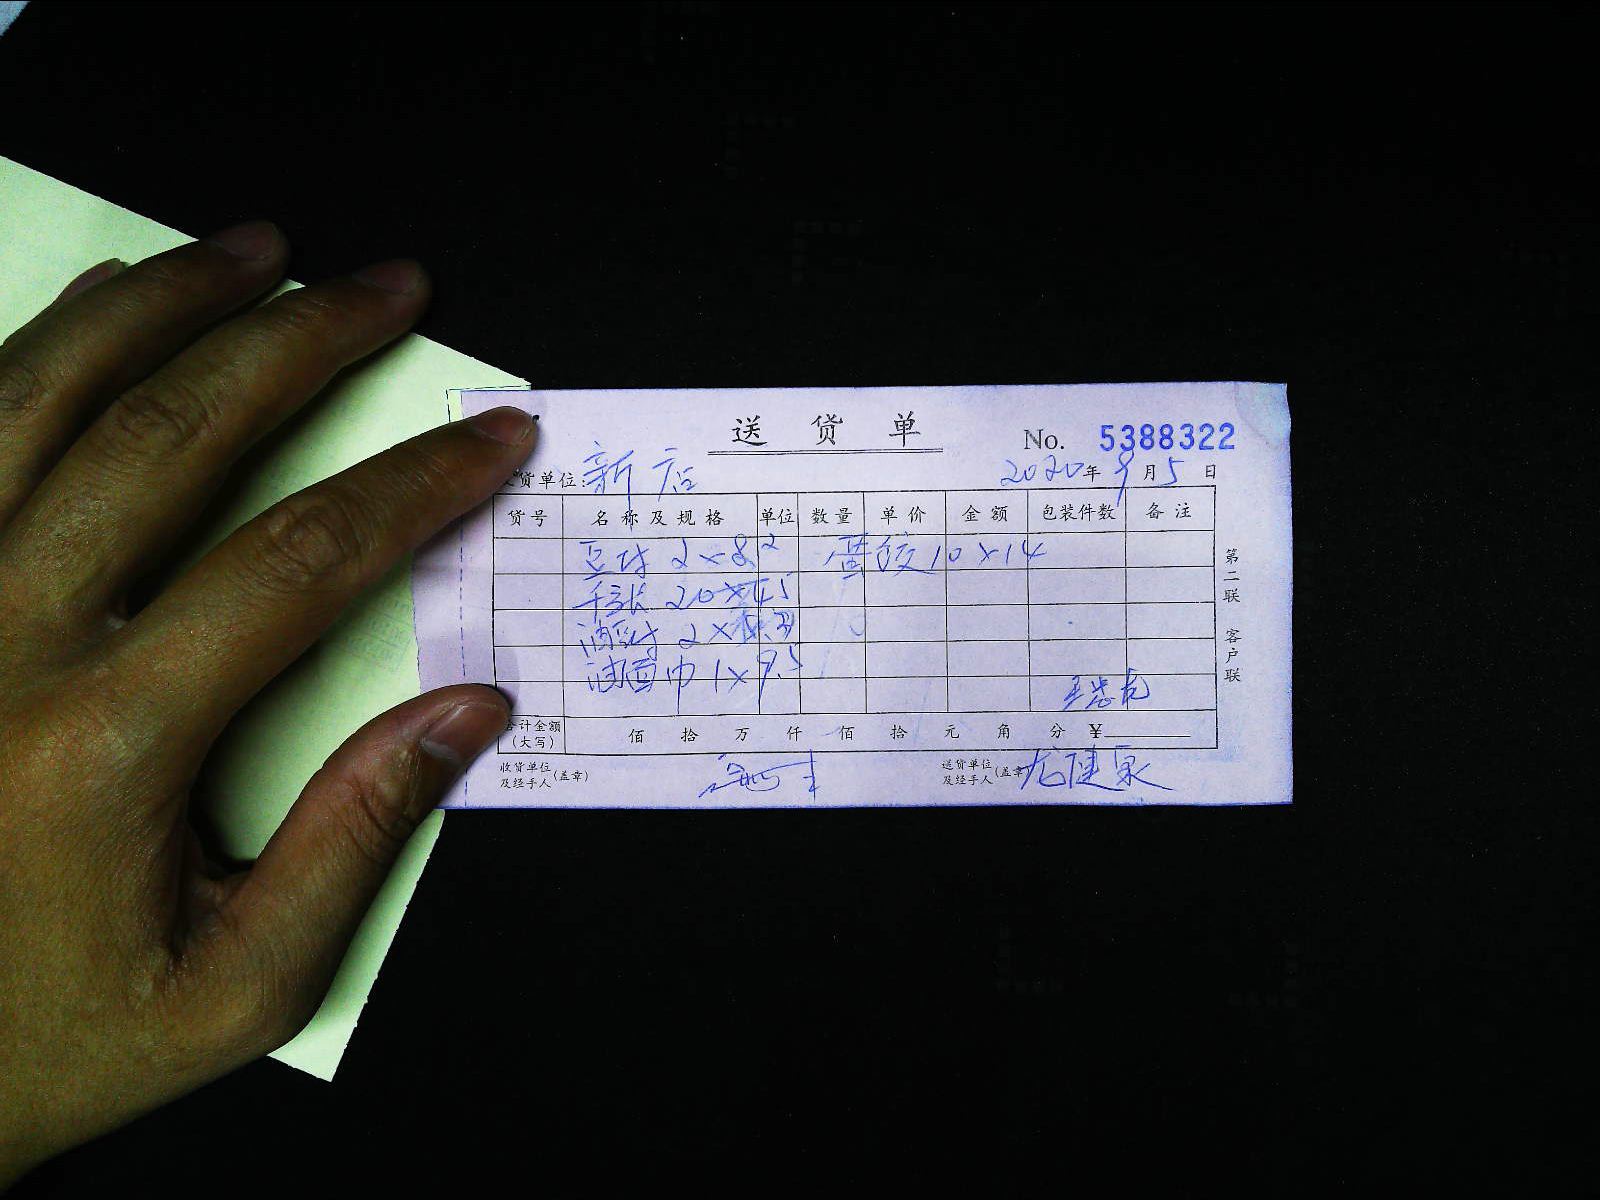 送 货 单
No. 5388322
货单位: 新店
2020年9月5日
货号 名称及规格 单位 数量 单价 金额 包装件数 备注
2×8.2 10×14
千张 20×4.5
2×
油面巾 1×9.5
合计金额(大写) 佰 拾 万 仟 佰 拾 元 角 分 ¥
收货单位及经手人(盖章)
送货单位及经手人(盖章) 龙健泉
第二联 客户联